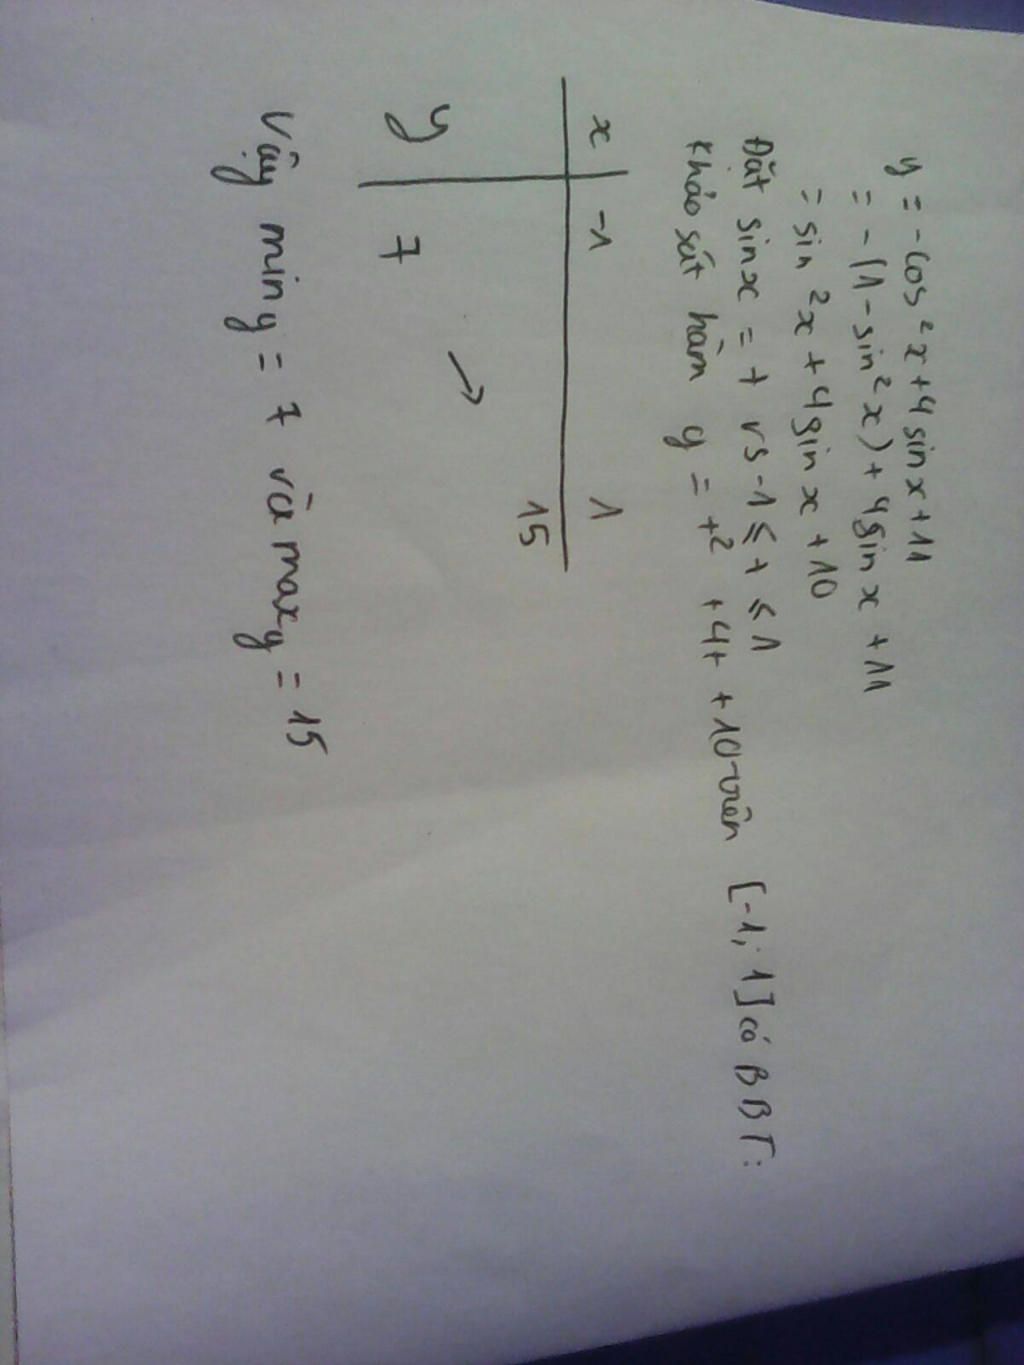 y = -cos²x + 4sinx + 11
= -(1 - sin²x) + 4sinx + 11
= sin²x + 4sinx + 10
Đặt sinx = t vs -1 ≤ t ≤ 1
Khảo sát hàm y = t² + 4t + 10 trên [-1; 1] có BBT:
x -1 1
y 7 → 15
Vậy min y = 7 và max y = 15